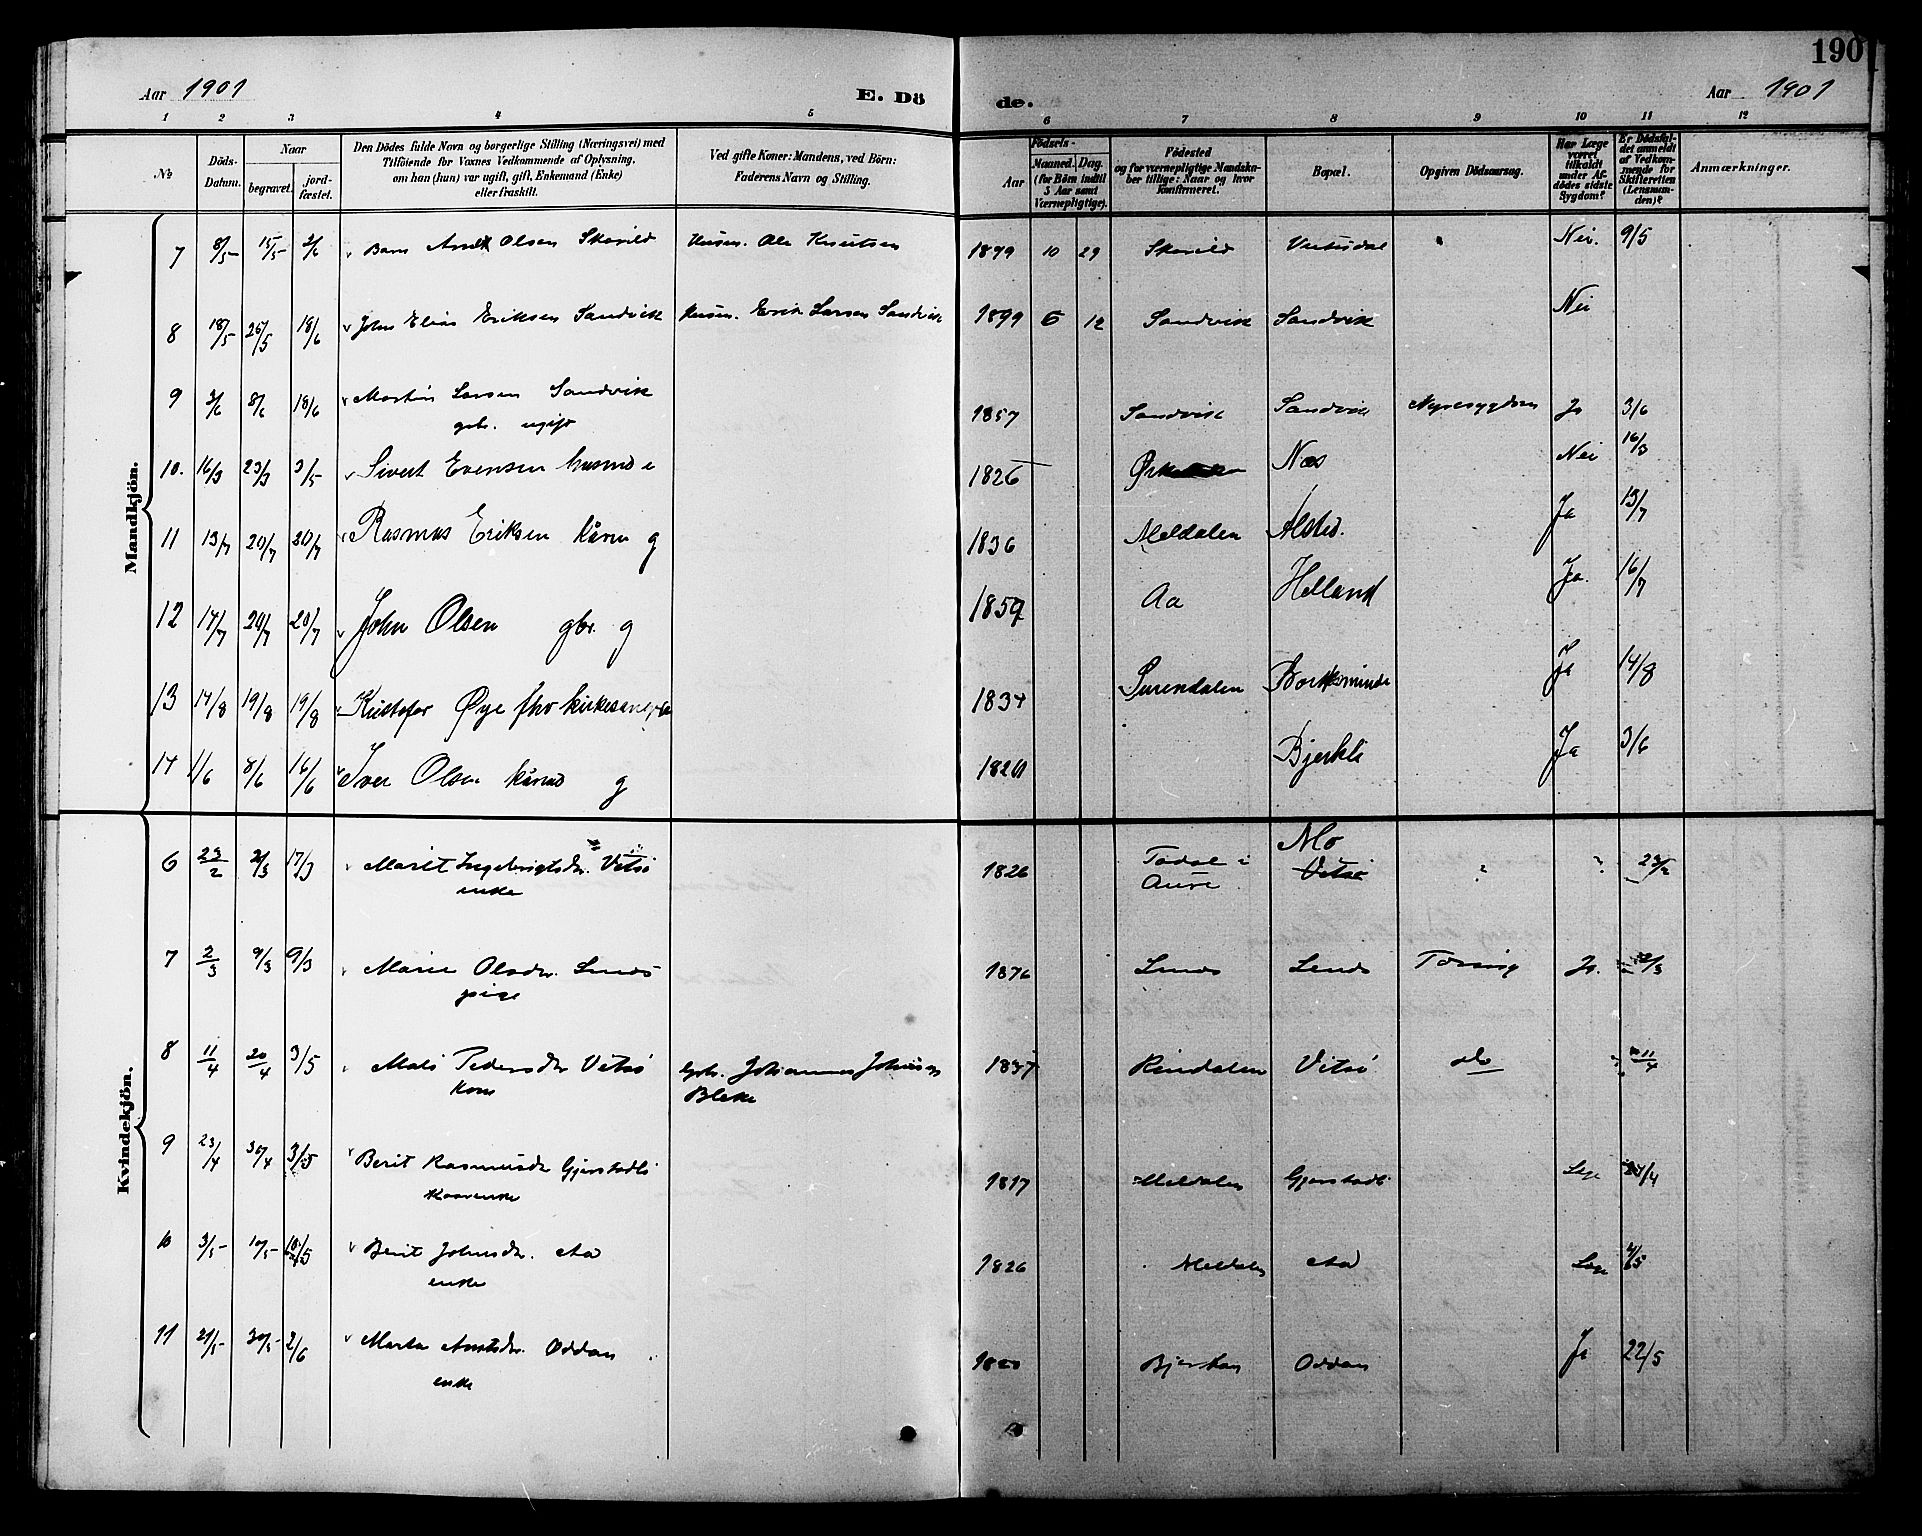 190
Aar 1901 E. Dö de. Aar 1901
1 2 3 4 5 6 7 8 9 10 11 12
No
Döds-Datum.
Naar
begravet.
jord-fæstet.
Den Dödes fulde Navn og borgerlige Stilling (Næringsvei) med
Tilföiende for Voxnes Vedkommende af Oplysning,
om han (hun) var ugift, gift, Enkemand (Enke)
eller fraskilt.
Ved gifte Koner: Mandens, ved Börn:
Faderens Navn og Stilling.
Födsels-
Aar
Maaned. Dag.
(for Börn indtil
5 Aar samt
Værnepligtige).
Födested
og for værnepligtige Mandska-
ber tillige: Naar og hvor
konfirmeret.
Bopæl.
Opgiven Dödsaarsag.
Har Læge
været
tilkaldt
under Af-
dödes sidste
Sygdom?
Er Dödsfal-
det anmeldt
af Vedkom-
mende for
Skifteretten
(Lensman-
den)?
Anmærkninger.
Mandkjön.
7 8/5 15/5 2/6 Barn Olsen Skarild Husm. Ole Knutsen 1899 10 29 Skarild Nei. 9/5
8 18/5 26/5 18/6 John Elias Eriksen Sandvik Husm. Erik Larsen Sandvik 1899 6 12 Sandvik Sandvik Nei
9 3/6 8/6 18/6 Martin Larsen Sandvik 1857 Sandvik Sandvik Nyresygdom Ja 3/6
gbr. ugift
10. 16/3 23/3 3/5 Sivert Evensen husmd e 1826 Næs Nei 16/3
11 13/7 20/7 20/7 Rasmus Eriksen kårm g 1836 Meldalen Alsted. Ja 13/7
12 14/7 20/7 20/7 John Olsen gbr. g 1859 Aa Helland Ja. 16/7
13 14/8 19/8 19/8 Kristofer Øye fhv kirkesanger 1834 Surendalen Ja 14/8
14 1/6 8/6 16/6 Iver Olsen kårmd g Bjerkli Ja 3/6
Kvindekjön.
6 23/2 2/3 17/3 Marit Ingebrigtsdr. Vitsö 1826 Todal i Mo 23/2
enke Aure Vitsö
7 2/3 9/3 9/3 Marie Olsdr. Lendö 1876 Lendö Lendö Tæring Ja. 2/3
pige
8 11/4 20/4 3/5 Mali Pedersdr Vitsö gbr. Johannes Johnsen 1837 Rindalen Vitsö do 11/4
kone Bleke
9 23/4 30/4 3/5 Berit Rasmusdr Gjerstadli 1817 Meldalen Gjerstadli Læge 24/4
Kaarenke
10 3/5 10/5 Berit Johnsdr. Aa 1826 Meldalen Aa Læge 4/5
enke
11 21/5 30/5 2/6 Marta Arntsdr. Oddan Bjerkan Oddan Ja 22/5
enke